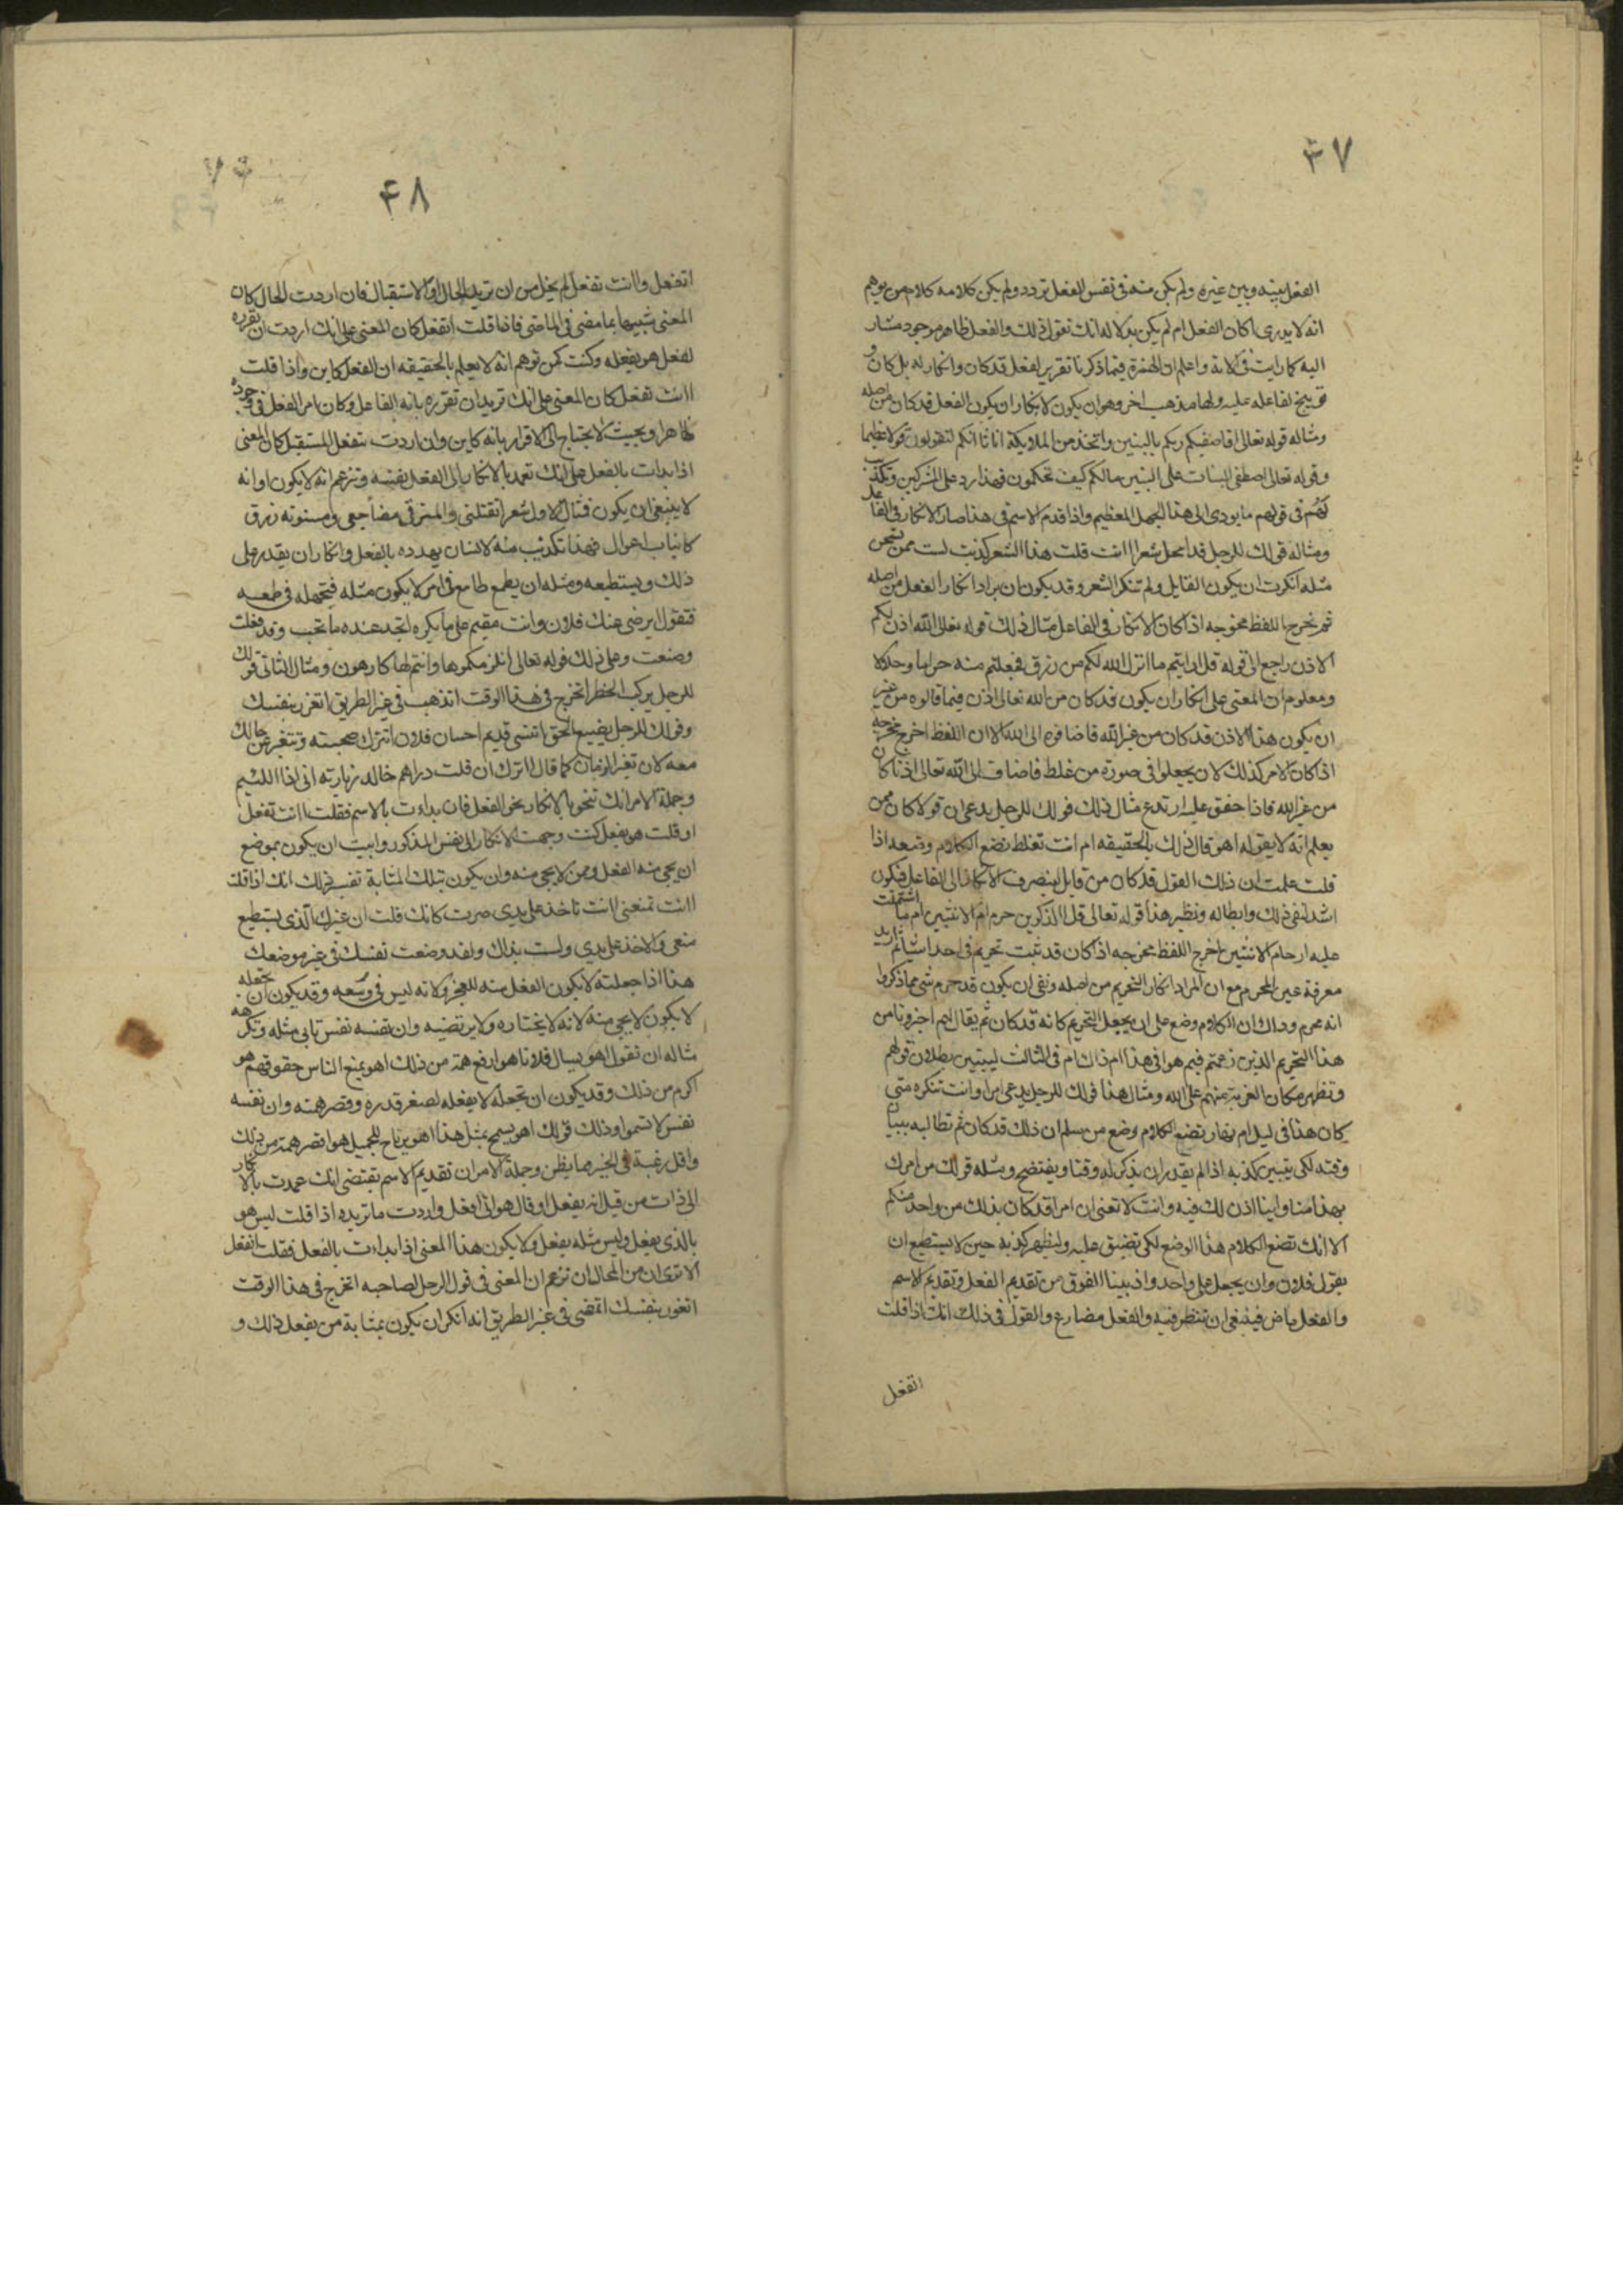 ٤٧
الفعل بينه وبين غيره ولم يكن منه في نفس الفعل تردد ولم يكن كلامه كلام من يوهم
انه لا يدرى اكان الفعل ام لم يكن بدلالة انك تقول ذلك والفعل ظاهر موجود مشار
اليه كما رايت في الاية واعلم ان الهمزة فيما ذكرنا تقرير لفعل قد كان وانكار له بل كان و
توبيخ لفاعله عليه ولها مذهب اخر وهو ان يكون لانكار ان يكون الفعل قد كان من اصله
ومثاله قوله تعالى افاصفيكم ربكم بالبنين واتخذ من الملايكة اناثا انكم لتقولون قولا عظيما
وقوله تعالى اصطفى البنات على البنين مالكم كيف تحكمون فهذا رد على المشركين وتكذيب
لهم في قولهم ما يودى الى هذا الجهل العظيم واذا قدم الاسم في هذا صار الانكار في الفاعل
ومثاله قولك للرجل قد انتحل شعرا اانت قلت هذا الشعر كذبت لست ممن يحسن
مثله انكرت ان يكون القايل ولم تنكر الشعر وقد يكون ان يراد انكار الفعل من اصله
ثم يخرج اللفظ مخرجه اذا كان الانكار في الفاعل مثال ذلك قوله تعالى الله اذن لكم
الاذن راجع الى قوله قل ارايتم ما انزل الله لكم من رزق فجعلتم منه حراما وحلالا
ومعلوم ان المعنى على انكار ان يكون قد كان من الله تعالى اذن فيما قالوه من غير
ان يكون هذا الاذن قد كان من غير الله فاضافوه الى الله الا ان اللفظ اخرج مخرجه
اذا كان الامر كذلك لان يجعلوا في صورة من غلط فاضاف الى الله تعالى اذنا كان
من غير الله فاذا حقق عليه ارتدع مثال ذلك قولك للرجل يدعى ان قولا كان ممن
يعلم انه لا يقوله اهو قال ذلك بالحقيقه ام انت تغلط تضع الكلام وضعه اذا
قلت علمت ان ذلك القول قد كان من قايل لينصرف الانكار الى الفاعل فيكون
اشد لنفى ذلك وابطاله ونظير هذا قوله تعالى قل االذكرين حرم ام الانثيين ام ما اشتملت
عليه ارحام الانثيين اخرج اللفظ مخرجه اذا كان قد ثبت تحريم في احد اشيا ثم اريد
معرفة عين المحرم مع ان المراد انكار التحريم من اصله ونفى ان يكون قد حرم شى مما ذكروا
انه محرم وذاك ان الكلام وضع على ان يجعل التحريم كانه قد كان ثم يقال لهم اخبرونا من
هذا التحريم الذين زعمتم فيم هو افى هذا ام ذاك ام في الثالث ليتبين بطلان قولهم
وتظهر مكان الفرية منهم على الله ومثال هذا قولك للرجل يدعى امرا وانت تنكره متى
كان هذا في ليل ام نهار تضع الكلام وضع من سلم ان ذلك قد كان ثم تطالبه ببيان
وقته لكى يتبين كذبه اذا لم يقدر ان يذكر له وقتا ويفتضح ومثله قولك من امرك
بهذا منا واينا اذن لك فيه وانت لا تعنى ان امرا قد كان بذلك من واحد منكم
الا انك تضع الكلام هذا الوضع لكى تضيق عليه وليظهر كذبه حين لا يستطيع ان
يقول فلان وان يجعل على واحد واذ بينا الفرق من تقديم الفعل وتقديم الاسم
والفعل ماض فينبغى ان تنظر فيه والفعل مضارع والقول في ذلك انك اذا قلت
اتفعل
٤٨
اتفعل واانت تفعل لم يخل من ان تريد الحال او الاستقبال فان اردت الحال كان
المعنى شبيها بما مضى في الماضى فاذا قلت اتفعل كان المعنى على انك اردت ان تقرره
لفعل هو يفعله وكنت كمن توهم انه لا يعلم بالحقيقه ان الفعل كاين واذا قلت
اانت تفعل كان المعنى على انك تريد ان تقرره بانه الفاعل وكان امر الفعل في وجوده
ظاهرا وبحيث لا يحتاج الى الاقرار بانه كاين وان اردت بتفعل المستقبل كان المعنى
اذا بدات بالفعل على انك تعمد بالانكار الى الفعل نفسه وتزعم انه لا يكون او انه
لا ينبغى ان يكون فمثال الاول شعر اتقتلنى والمشرفى مضاجعى ومسنونه زرق
كانياب اغوال فهذا تكذيب منه لانسان يهدده بالفعل وانكار ان يقدر على
ذلك ويستطيعه ومثله ان يطمع طامع في امر لا يكون مثله فتجهله في طمعه
فتقول ايرضى عنك فلان وانت مقيم على ما يكره اتجد عنده ما تحب وقد فعلت
وصنعت وعلى ذلك قوله تعالى انلزمكموها وانتم لها كارهون ومثال الثانى قولك
للرجل يركب الخطر اتخرج في هذا الوقت اتذهب في غير الطريق اتغرر بنفسك
وقولك للرجل يضيع الحق اتنسى قديم احسان فلان اتترك صحبته وتتغير عن حالك
معه لان تغير الزمان كما قال ااترك ان قلت دراهم خالد زيارته انى اذا اللئيم
وجملة الامر انك تنحو بالانكار نحو الفعل فان بداءت بالاسم فقلت اانت تفعل
او قلت هو يفعل كنت وجهت الانكار الى نفس المذكور وابيت ان يكون بموضع
ان يجى منه الفعل وممن لا يجى منه وان يكون بتلك المثابة تفسير ذلك انك اذا قلت
اانت تمنعنى اانت تاخذ على يدى صرت كانك قلت ان غيرك الذى يستطيع
منعى والاخذ على يدى ولست بذاك ولقد وضعت نفسك في غير موضعك
هذا اذا جعلته لا يكون الفعل منه للعجز ولانه ليس في وسعه وقد يكون ان تجعله
لا يكون لا يجى منه لانه لا يختاره ولا يرتضيه وان نفسه نفس تابى مثله وتكرهه
مثاله ان تقول اهو يسال فلانا هو ارفع همة من ذلك اهو يمنع الناس حقوقهم هو
اكرم من ذلك وقد يكون ان تجعله لا يفعله لصغر قدره وقصر همته وان نفسه
نفس لا تسموا وذلك قولك اهو يسمح بمثل هذا اهو يرتاح للجميل هو اقصر همة من ذلك
واقل رغبة في الخير مما يظن وجملة الامر ان تقديم الاسم يقتضى انك عمدت بالانكار
الى ذات من قيل انه يفعل او قال هو انى افعل واردت ما تريده اذا قلت ليس هو
بالذى يفعل وليس مثله يفعل ولا يكون هذا المعنى اذا بداءت بالفعل فقلت اتفعل
الا ترى ان من المحال ان تزعم ان المعنى في قول الرجل لصاحبه اتخرج في هذا الوقت
اتغرر بنفسك اتمضى في غير الطريق انه انكر ان يكون بمثابة من يفعل ذلك و